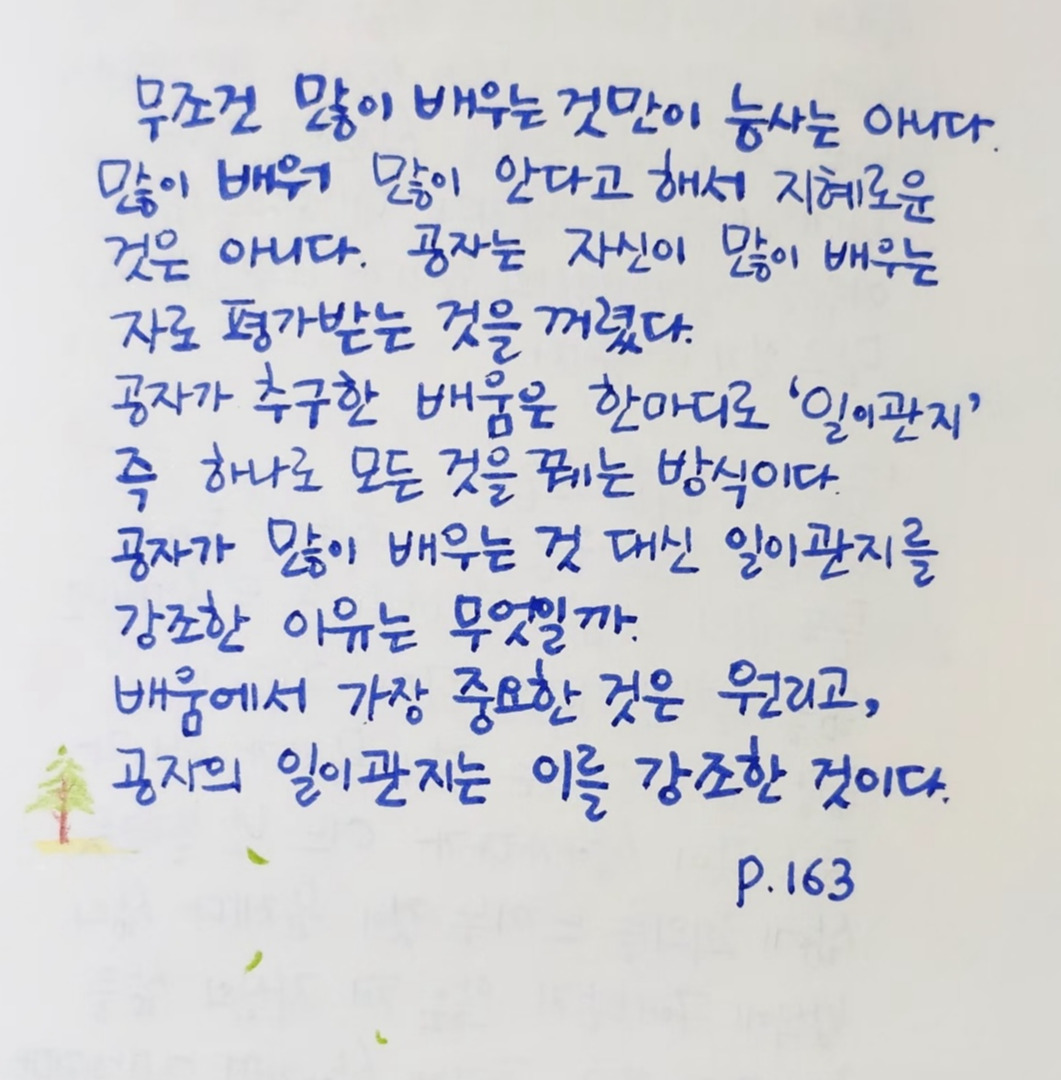 무조건 많이 배우는 것만이 능사는 아니다.
많이 배워 많이 안다고 해서 지혜로운
것은 아니다. 공자는 자신이 많이 배우는
자로 평가받는 것을 꺼렸다.
공자가 추구한 배움은 한마디로 '일이관지'
즉 하나로 모든 것을 꿰는 방식이다.
공자가 많이 배우는 것 대신 일이관지를
강조한 이유는 무엇일까.
배움에서 가장 중요한 것은 원리고,
공자의 일이관지는 이를 강조한 것이다.
p.163